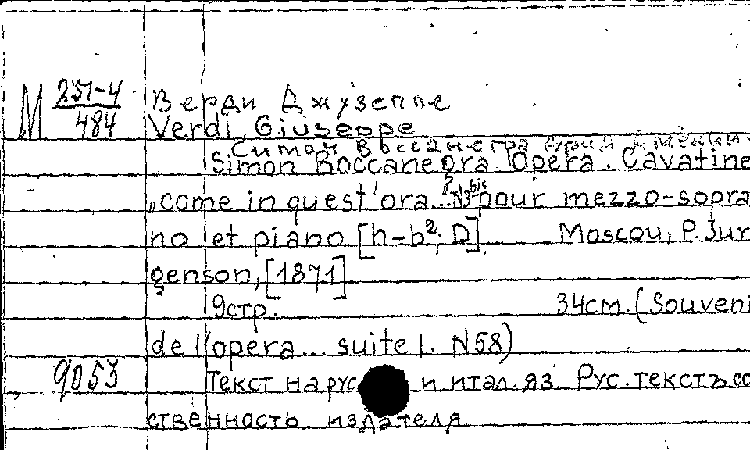 М 251-4
484
Верди Джузеппе
Verdi, Giuseppe
Симон Бокканегра
Simon Boccanegra. Opera. Cavatine
"come in quest'ora... pour mezzo-sopra
no et piano [h-b²; D]. Moscou, P. Jur
genson, [1871]
9стр. 34см. (Souveni
de l'opera... suite 1. N58)
9053 Текст на рус и итал. яз. Рус. текстъ со
ственность издателя